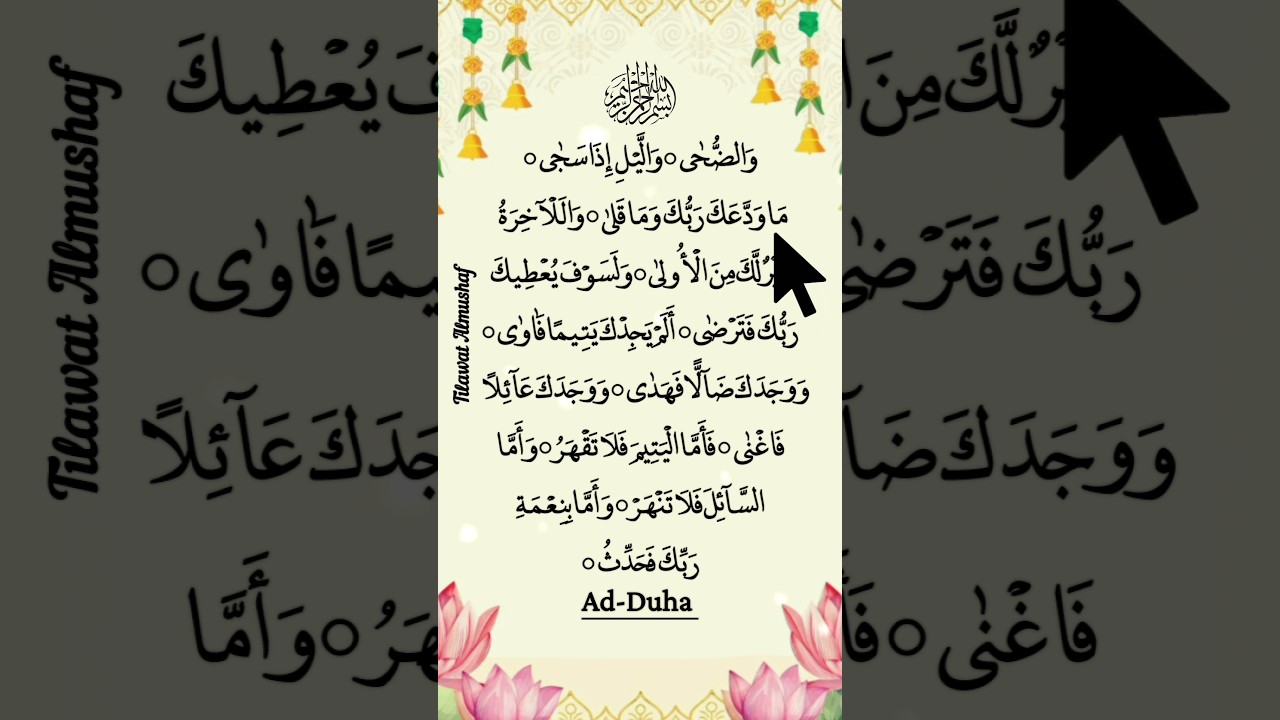 بسم الله الرحمن الرحيم
وَالضُّحٰى ○ وَالَّيْلِ إِذَا سَجٰى ○
مَا وَدَّعَكَ رَبُّكَ وَمَا قَلٰى ○ وَالَلْآخِرَةُ
لَّكَ مِنَ الْأُولٰى ○ وَلَسَوْفَ يُعْطِيكَ
رَبُّكَ فَتَرْضٰى ○ أَلَمْ يَجِدْكَ يَتِيمًا فَاٰوٰى ○
وَوَجَدَكَ ضَآلًّا فَهَدٰى ○ وَوَجَدَكَ عَآئِلاً
فَاغْنٰى ○ فَأَمَّا الْيَتِيمَ فَلَا تَقْهَرُ ○ وَأَمَّا
السَّآئِلَ فَلَا تَنْهَرْ ○ وَأَمَّا بِنِعْمَةِ
رَبِّكَ فَحَدِّثُ ○
Ad-Duha
Tilawat Almushaf